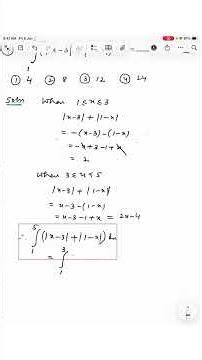 ∫₁ (|x-3|+|1-x|) = ____
① 4 ② 8 ③ 12 ④ 24
Soln When 1≤x≤3
|x-3|+|1-x|
= -(x-3)-(1-x)
= -x+3-1+x
= 2
When 3≤x≤5
|x-3|+|1-x|
= x-3-(1-x)
= x-3-1+x = 2x-4
∴ ∫₁⁵ (|x-3|+|1-x|) dx
= ∫₁³